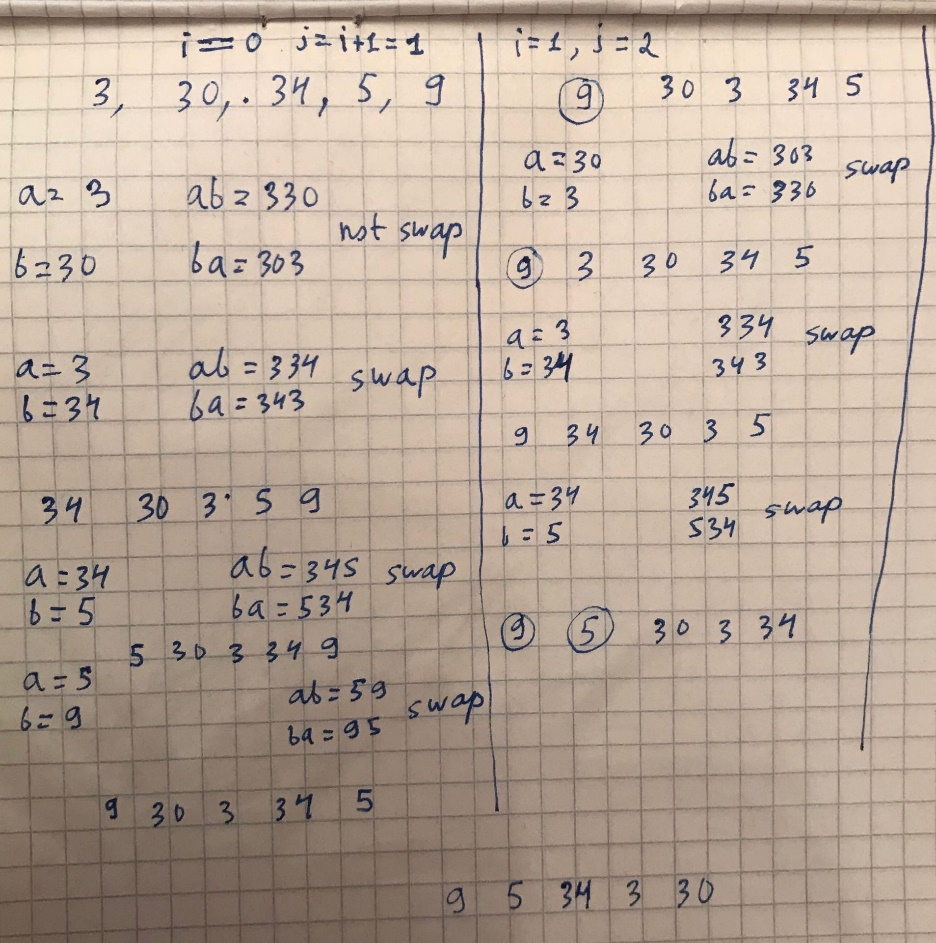 i = 0 j = i+1 = 1
3, 30, . 34, 5, 9
a = 3 ab = 330
not swap
b = 30 ba = 303
a = 3 ab = 334
swap
b = 34 ba = 343
34 30 3 5 9
a = 34 ab = 345 swap
b = 5 ba = 534
5 30 3 34 9
a = 5 ab = 59
swap
b = 9 ba = 95
9 30 3 34 5
i = 1, j = 2
9 30 3 34 5
a = 30 ab = 303
swap
b = 3 ba = 330
9 3 30 34 5
a = 3 334 swap
b = 34 343
9 34 30 3 5
a = 34 345
swap
b = 5 534
9 5 30 3 34
9 5 34 3 30